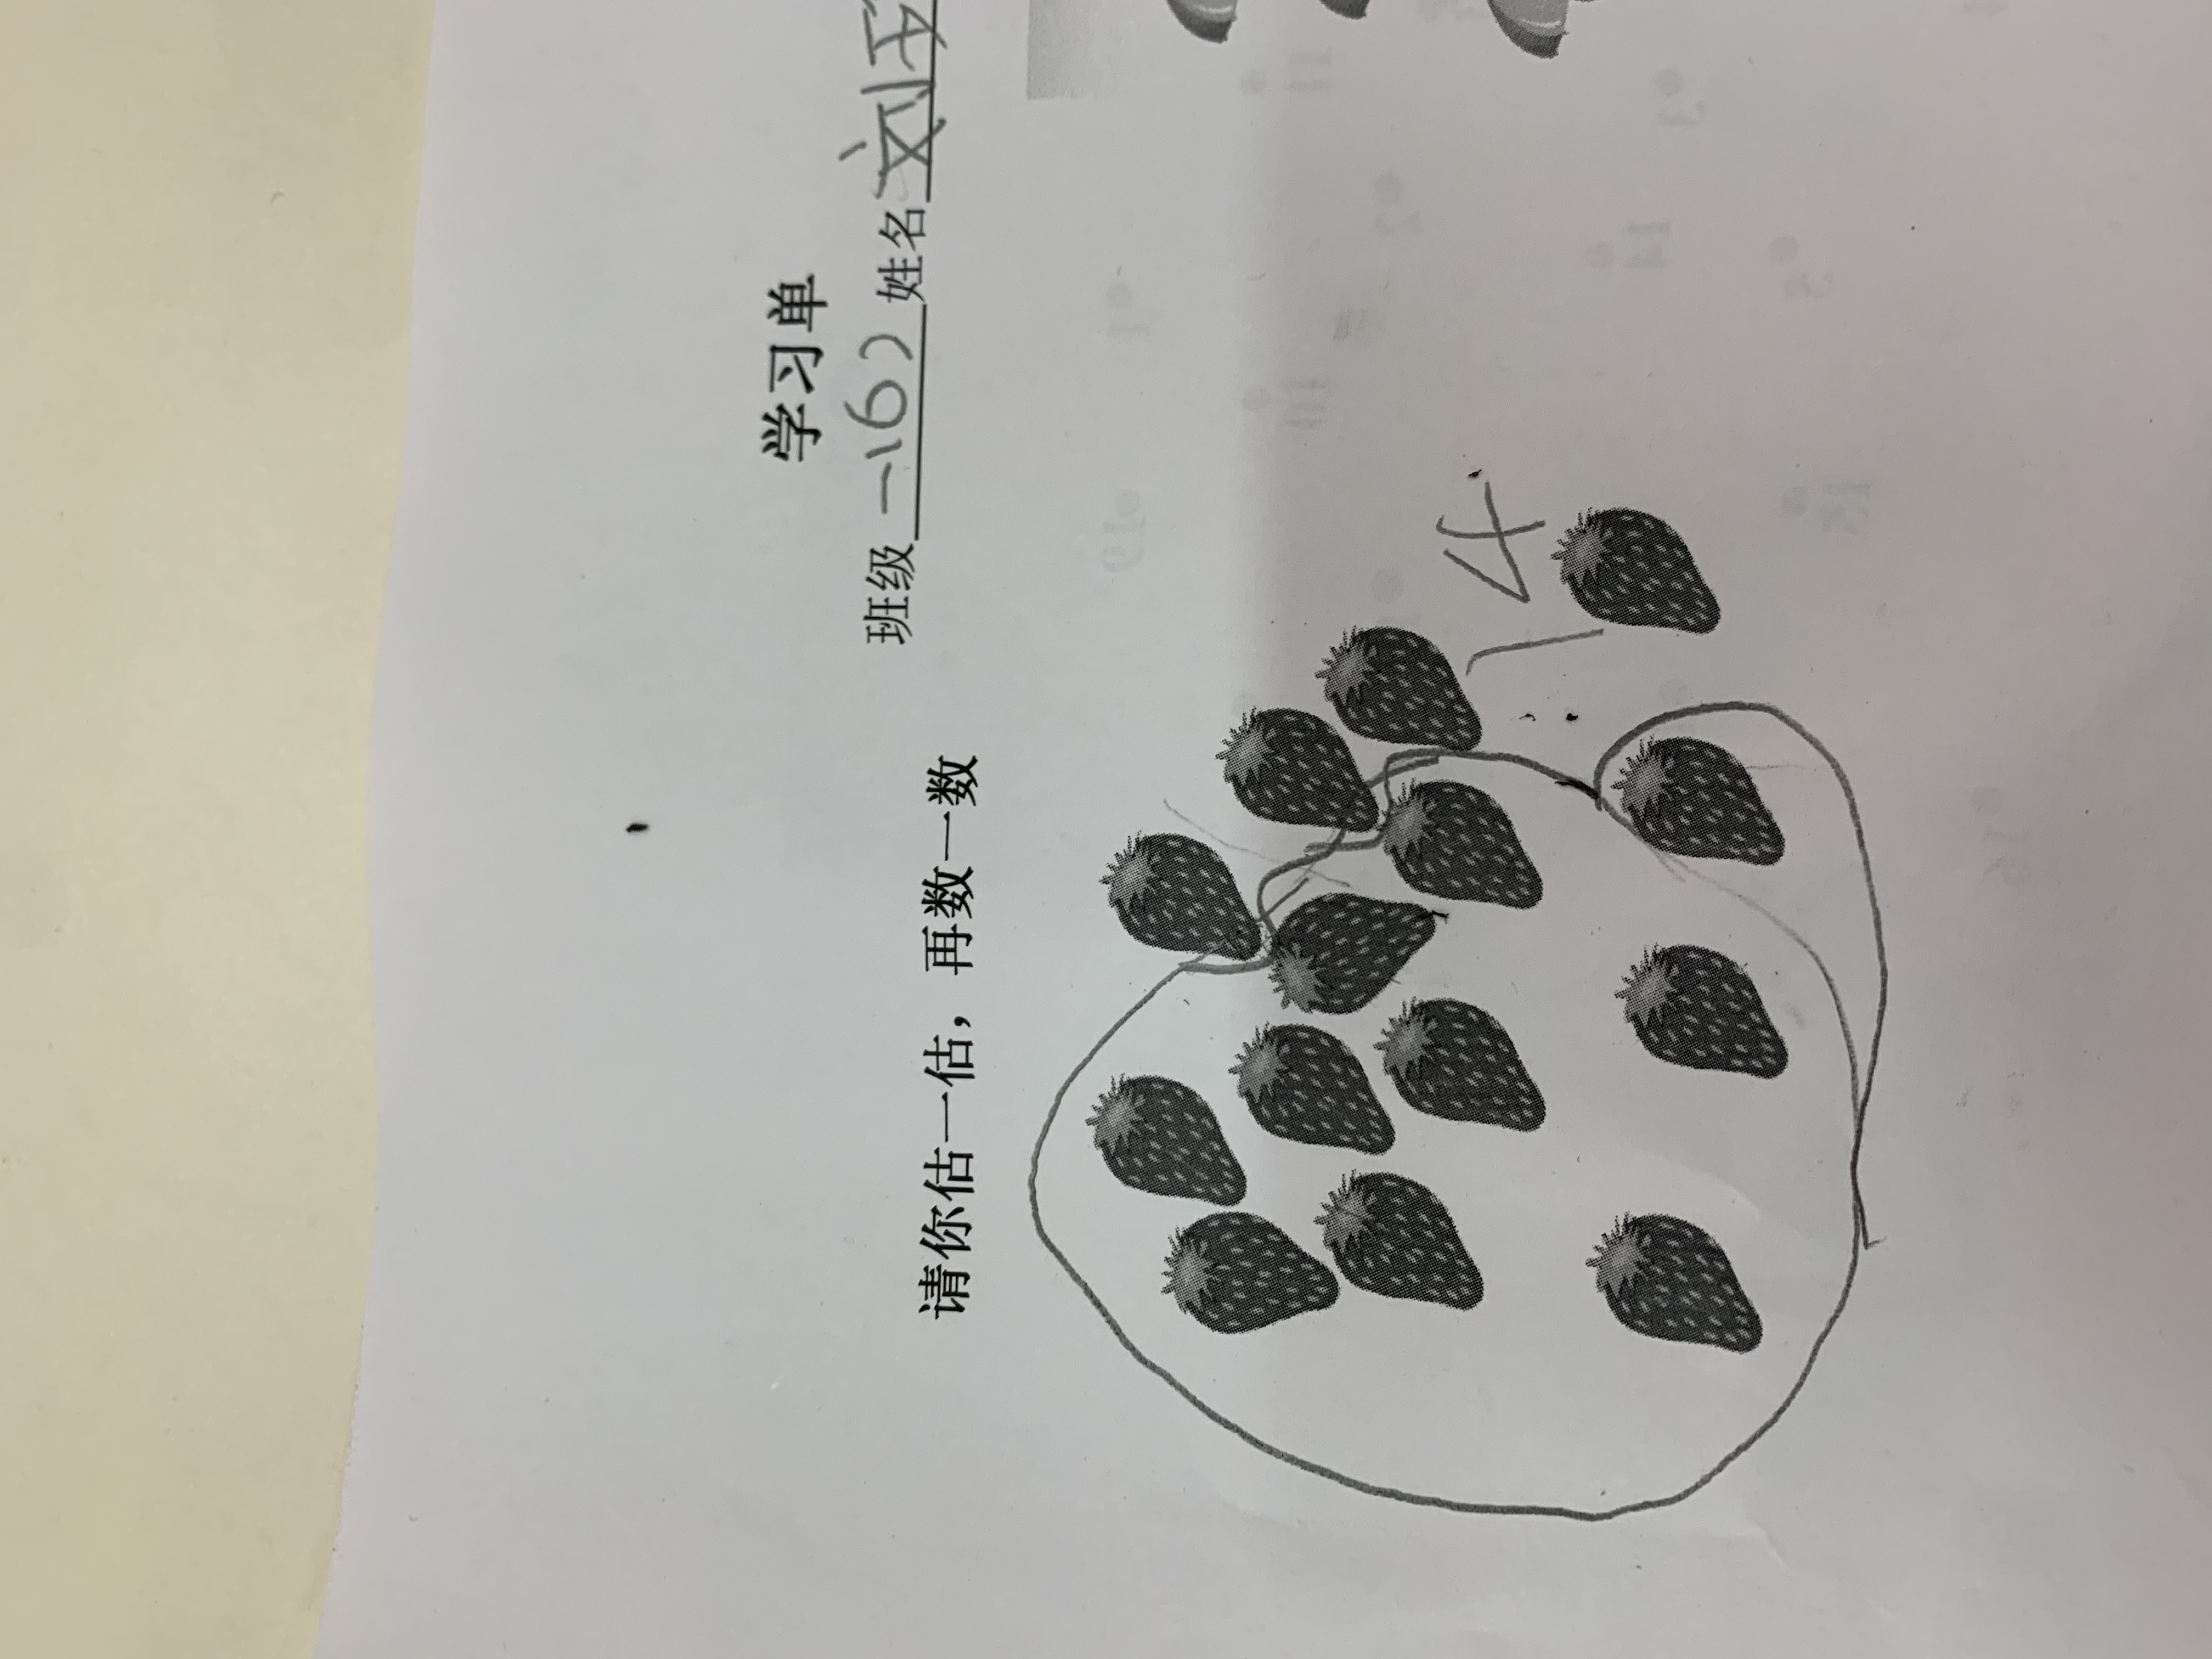 学习单
班级一(6) 姓名刘
请你估一估，再数一数
14